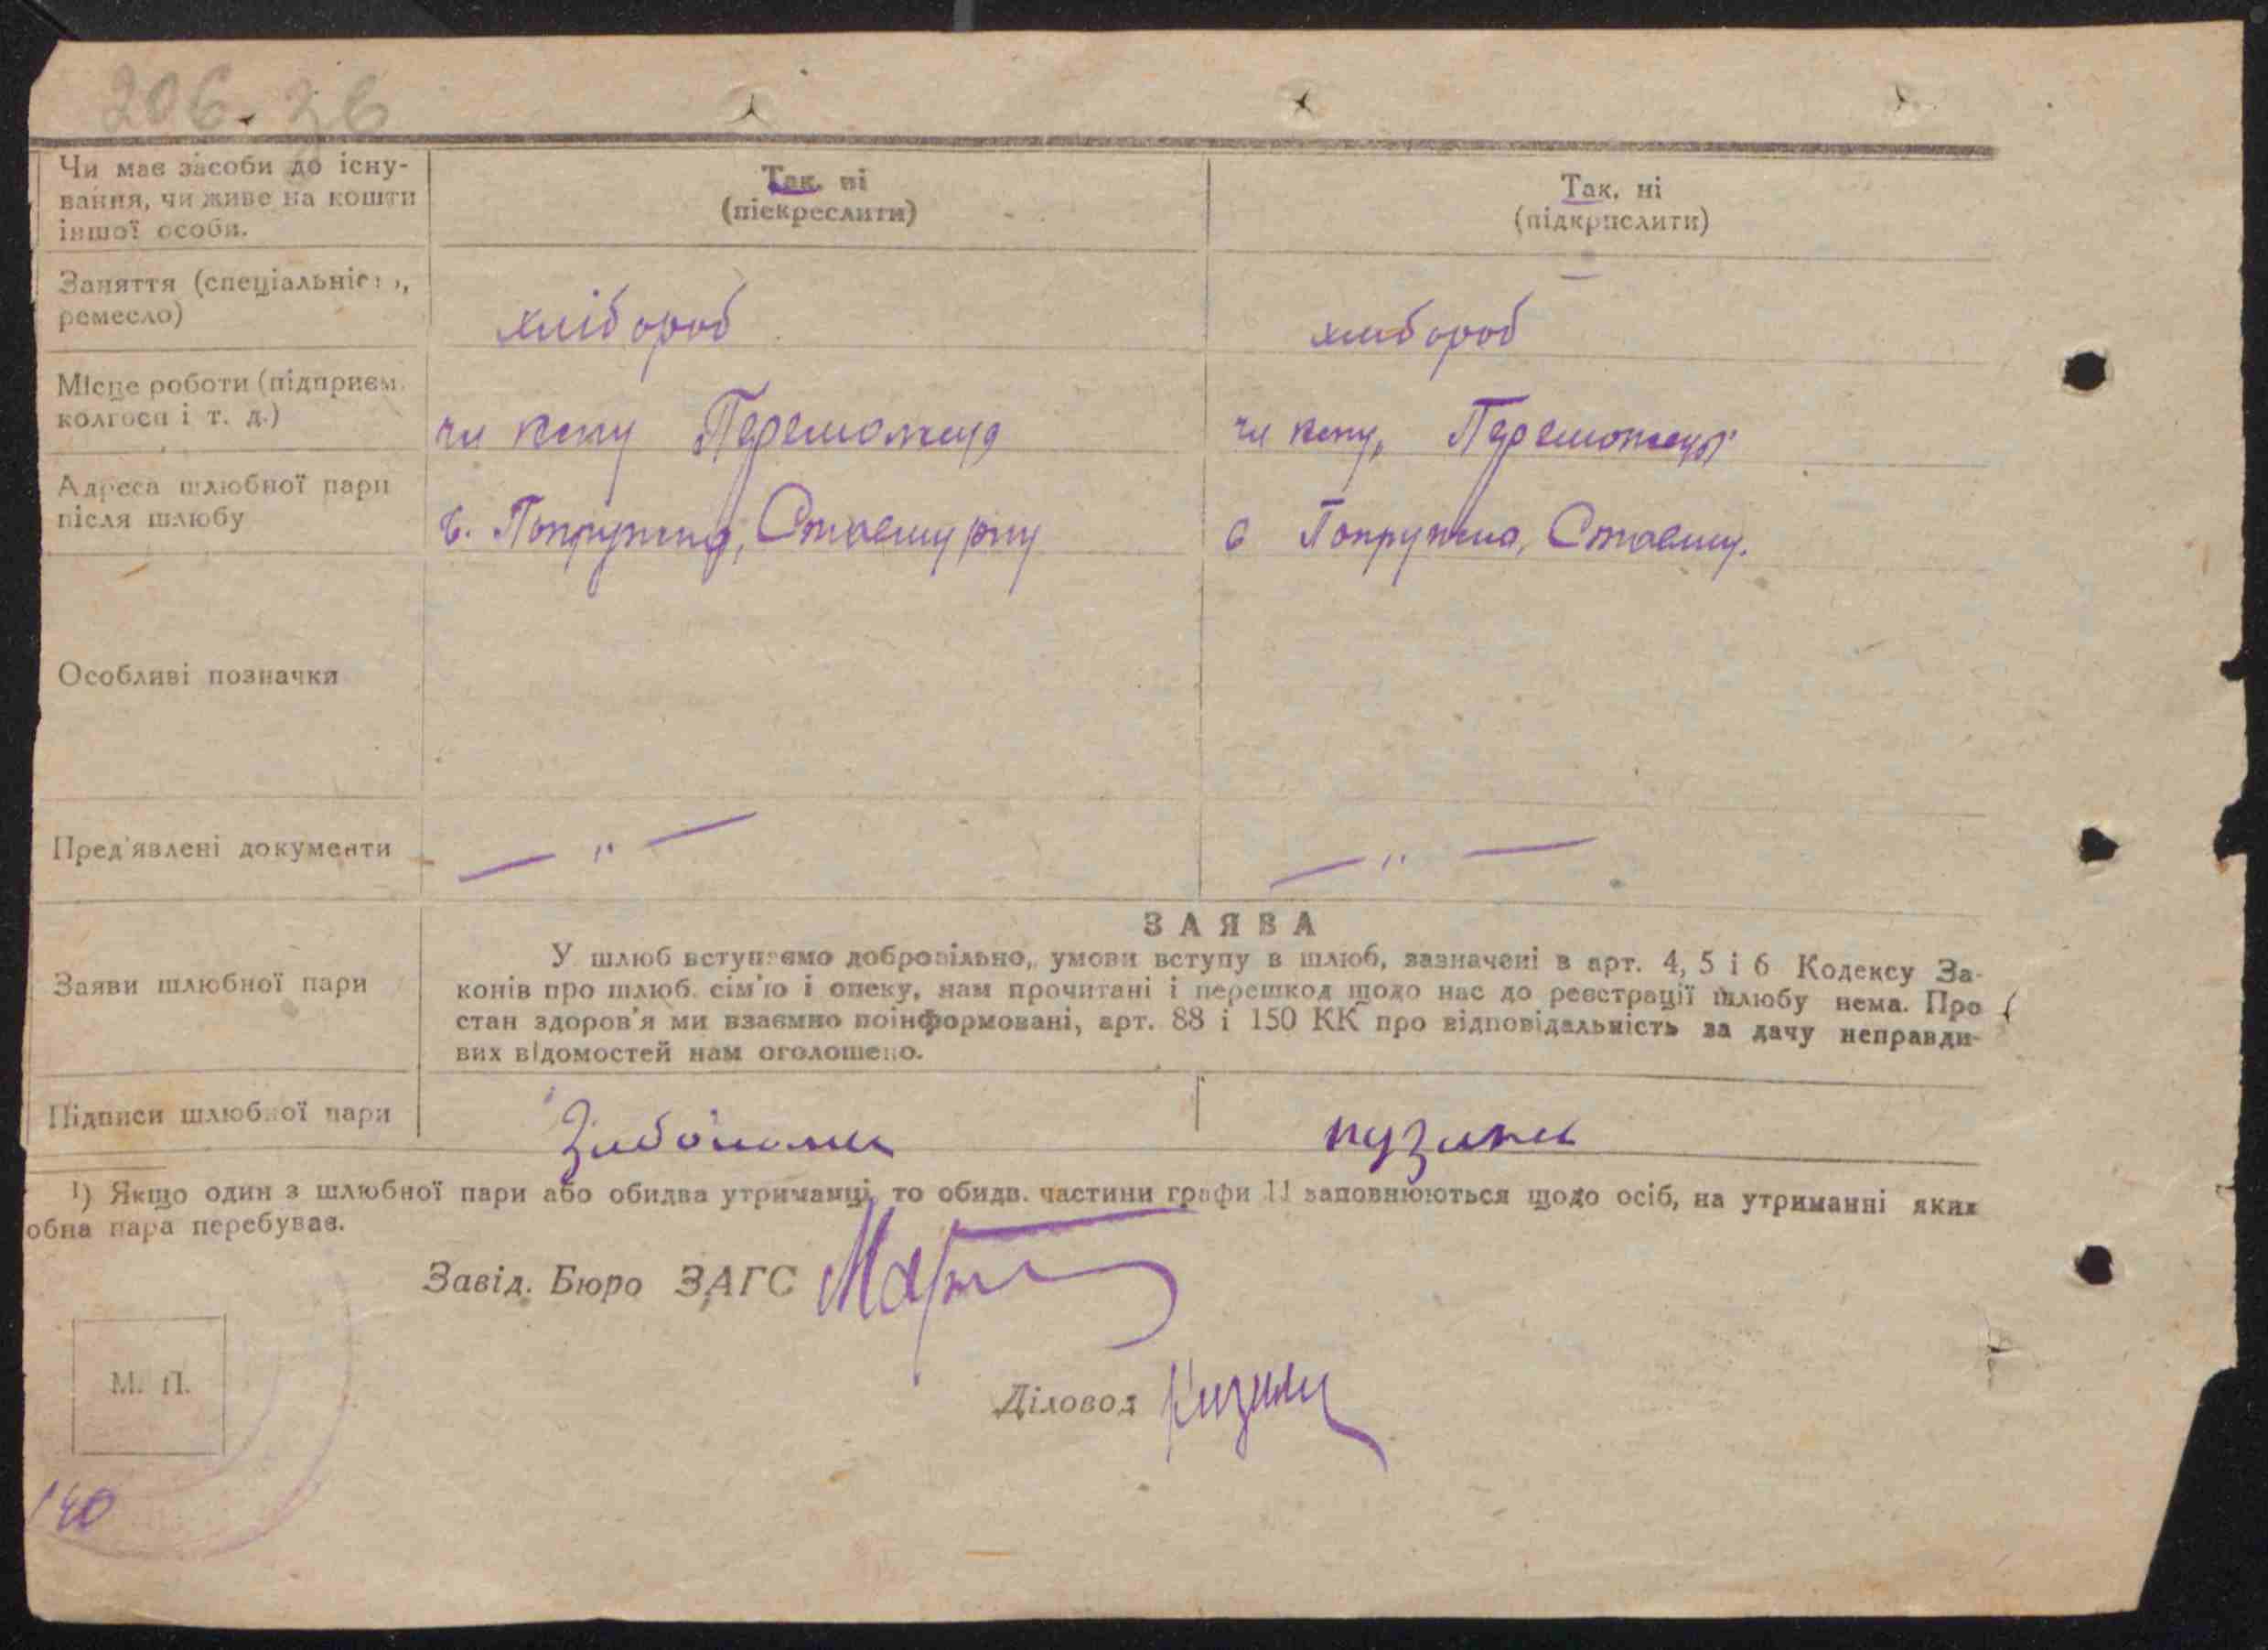 206. 26
Чи має засоби до існу-
вання, чи живе на кошти
іншої особи.
Так, ні
(піекреслити)
Так, ні
(підкрпслити)
Заняття (спеціальніс
ремесло)
хлібороб
хлібороб
Місце роботи (підприєм.
колгосп і т. д.)
чл Переможец
чл Переможец
Адреса шлюбної пари
після шлюбу
с. Попружна,
с Попружна,
Особливі позначки
Пред'явлені документи
— " —
— " —
Заяви шлюбної пари
ЗАЯВА
У шлюб вступаємо добровільно, умови вступу в шлюб, зазначені в арт. 4, 5 і 6 Кодексу За-
конів про шлюб. сім'ю і опеку, нам прочитані і перешкод щодо нас до реєстрації шлюбу нема. Про
стан здоров'я ми взаємно поінформовані, арт. 88 і 150 КК про відповідальність за дачу неправди-
вих відомостей нам оголошено.
Підписи шлюбної пари
1) Якщо один з шлюбної пари або обидва утриманці, то обидв. частини графи 11 заповнюються щодо осіб, на утриманні яких
обна пара перебуває.
Завід. Бюро ЗАГС
М. П.
Діловод
140